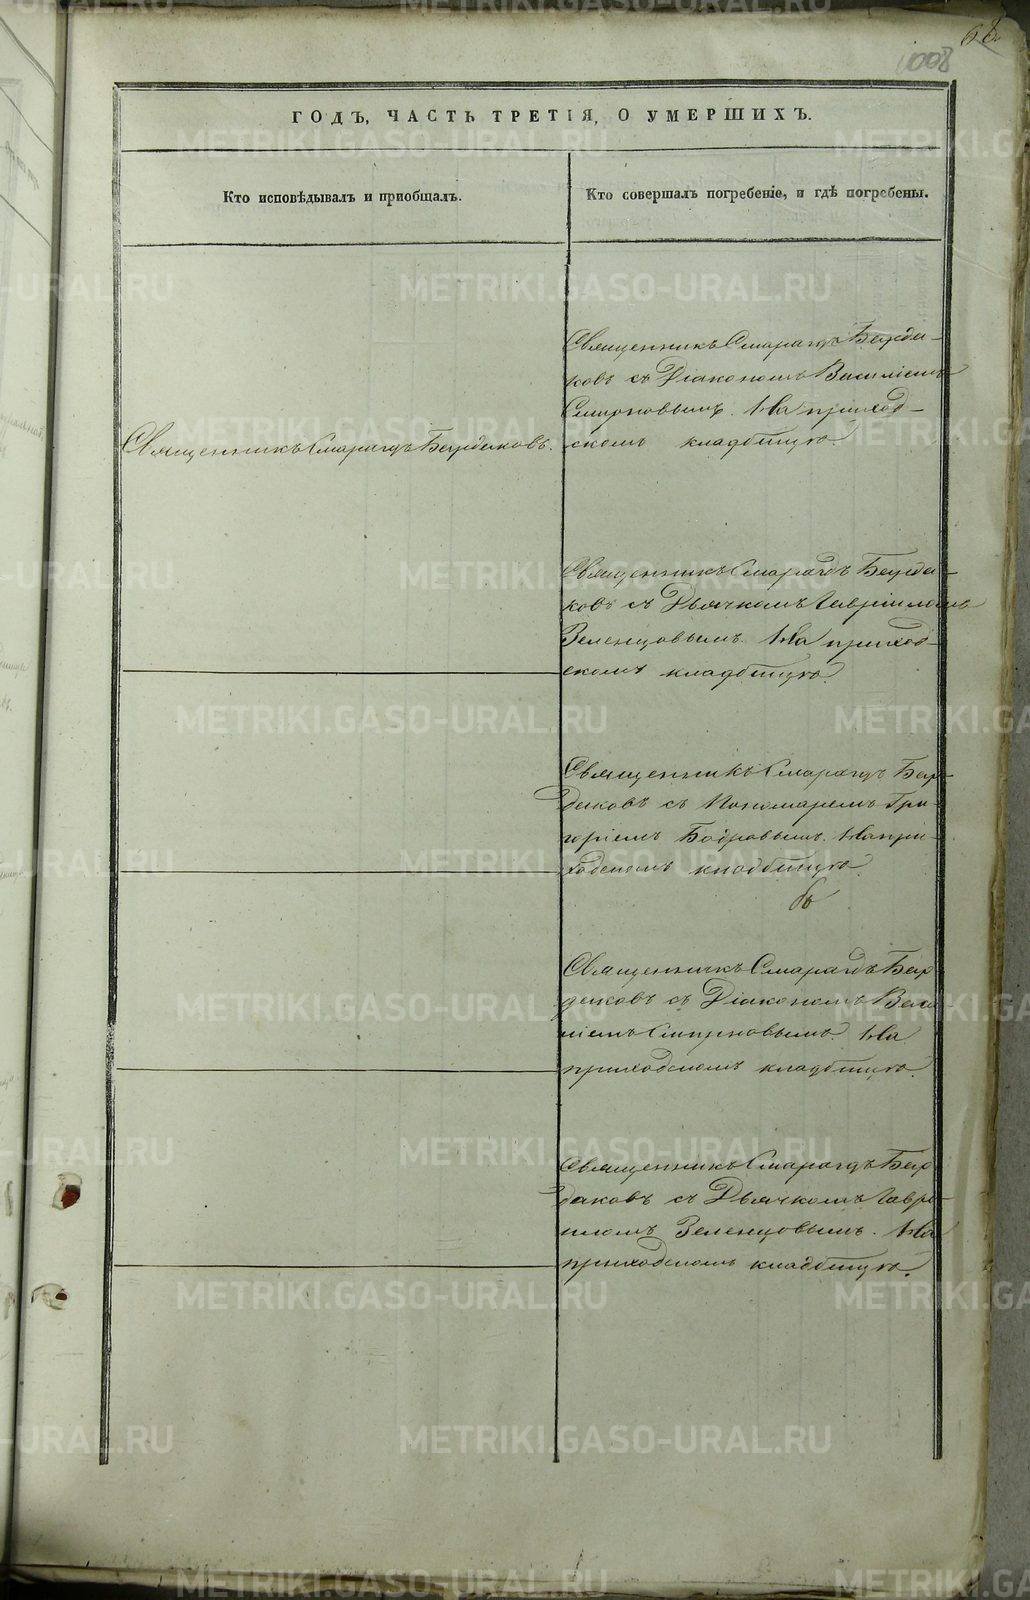 68
1008
ГОДЪ, ЧАСТЬ ТРЕТІЯ, О УМЕРШИХЪ.
Кто исповѣдывалъ и пріобщалъ.
Кто совершалъ погребеніе, и гдѣ погребены.
Священникъ Смарагдъ Бурдаковъ.
Священникъ Смарагдъ Бурда-
ковъ съ Діакономъ Василіемъ
Смирновымъ. На приход-
скомъ кладбищѣ.
Священникъ Смарагдъ Бурда-
ковъ съ Дьячкомъ Гавріиломъ
Зеленцовымъ. На приход-
скомъ кладбищѣ.
Священникъ Смарагдъ Бур-
даковъ съ Пономаремъ Гри-
горіемъ Бобровымъ. На при-
ходскомъ кладбищѣ.
Священникъ Смарагдъ Бур
даковъ съ Діакономъ Васи
ліемъ Смирновымъ. На
приходскомъ кладбищѣ.
Священникъ Смарагдъ Бур
даковъ съ Дьячкомъ Гаврі-
иломъ Зеленцовымъ. На
приходскомъ кладбищѣ.
METRIKI.GASO-URAL.RU